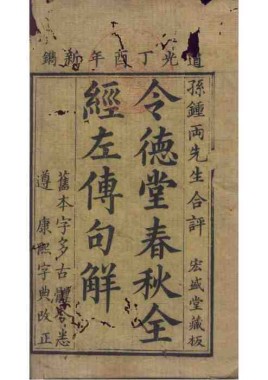 道光丁酉年新鐫
孫鍾兩先生合評 宏盛堂藏板
令德堂春秋全
經左傳句解
舊本字多古體今悉
遵 康熙字典改正